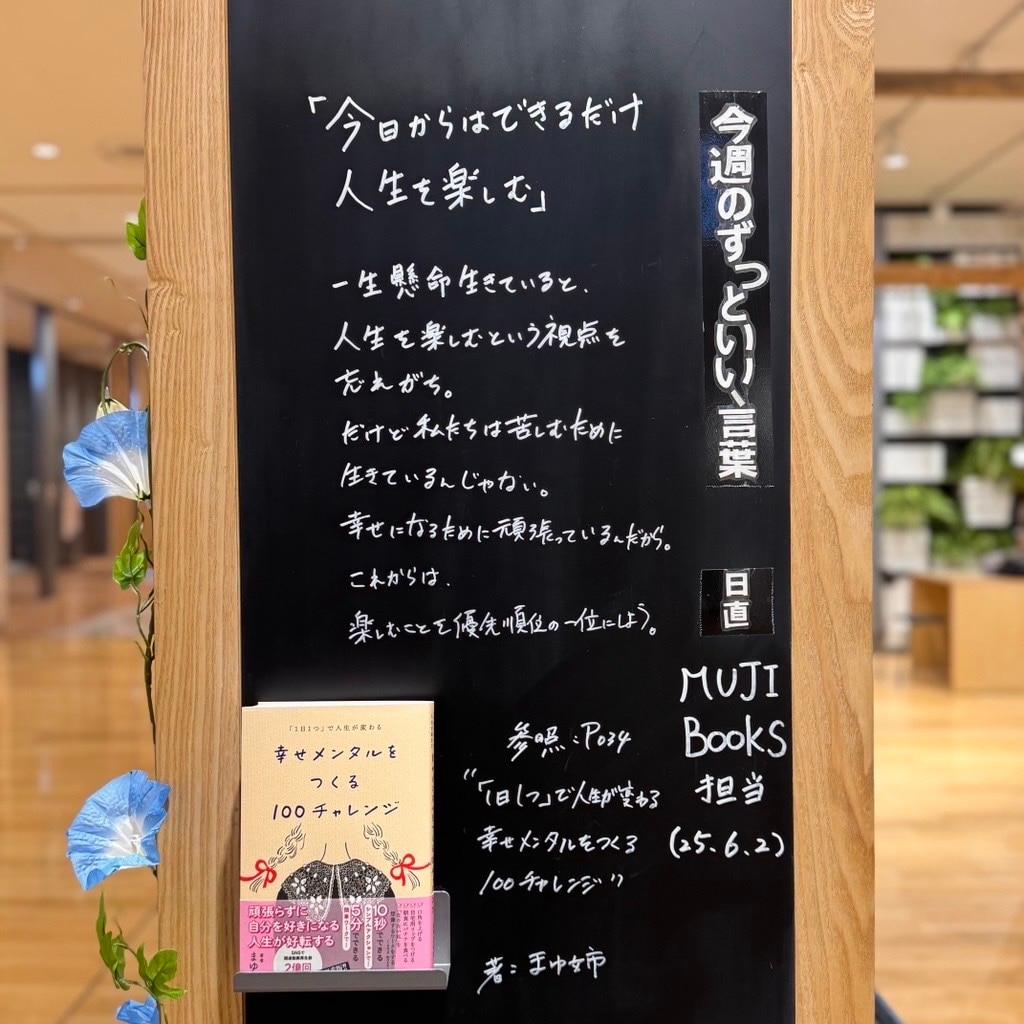 今週のずっといい、言葉
「今日からはできるだけ
人生を楽しむ」
一生懸命生きていると、
人生を楽しむという視点を
忘れがち。
だけど私たちは苦しむために
生きているんじゃない。
幸せになるために頑張っているんだから。
これからは、
楽しむことを優先順位の一位にしよう。
日直
MUJI
BOOKS
担当
(25.6.2)
参照:P034
"「1日1つ」で人生が変わる
幸せメンタルをつくる
100チャレンジ"
著:まゆ姉
「1日1つ」で人生が変わる
幸せメンタルを
つくる
100チャレンジ
頑張らずに
自分を好きになる
人生が好転する
10秒でできる
5分でできる
SNSで
2億回
著者
まゆ